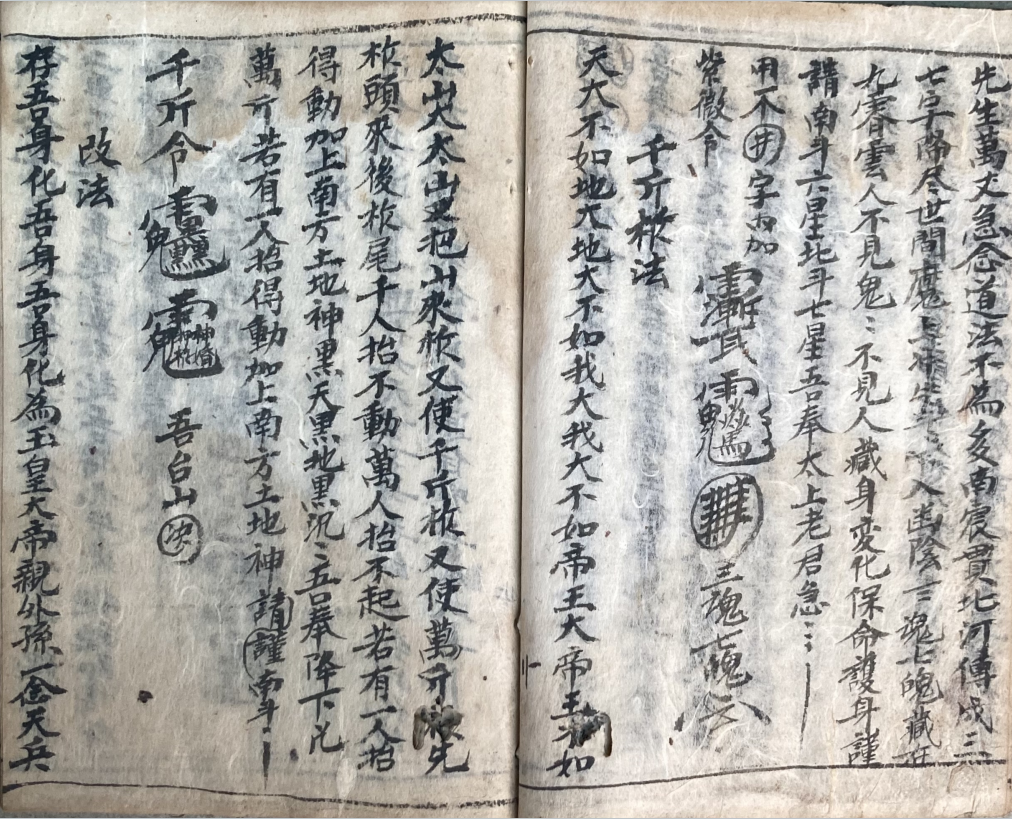 先生萬丈急念道法不為多南辰貫北河傳成三
七字降尽世間魔上年入幽陰三魂七魄藏在
九霄雲人不見鬼〻不見人藏身变化保命護身謹
請南斗六星北斗七星吾奉太上老君急〻
用不井字内加
紫微令 三魂七魄
千斤栨法
天大不如地大地大不如我大我大不如帝王大帝王不如
太山大太山又把山來栨又使千斤栨又使萬斤栨先
栨頭來後栨尾千人抬不動萬人抬不起若有一人抬
得動加上南方土地神黑天黑地黑沉〻吾奉降下凡
萬斤若有一人抬得動加上南方土地神請謹南斗
千斤令 吾台山
改法
存吾身化吾身吾身化為玉皇大帝親外孫一念天兵